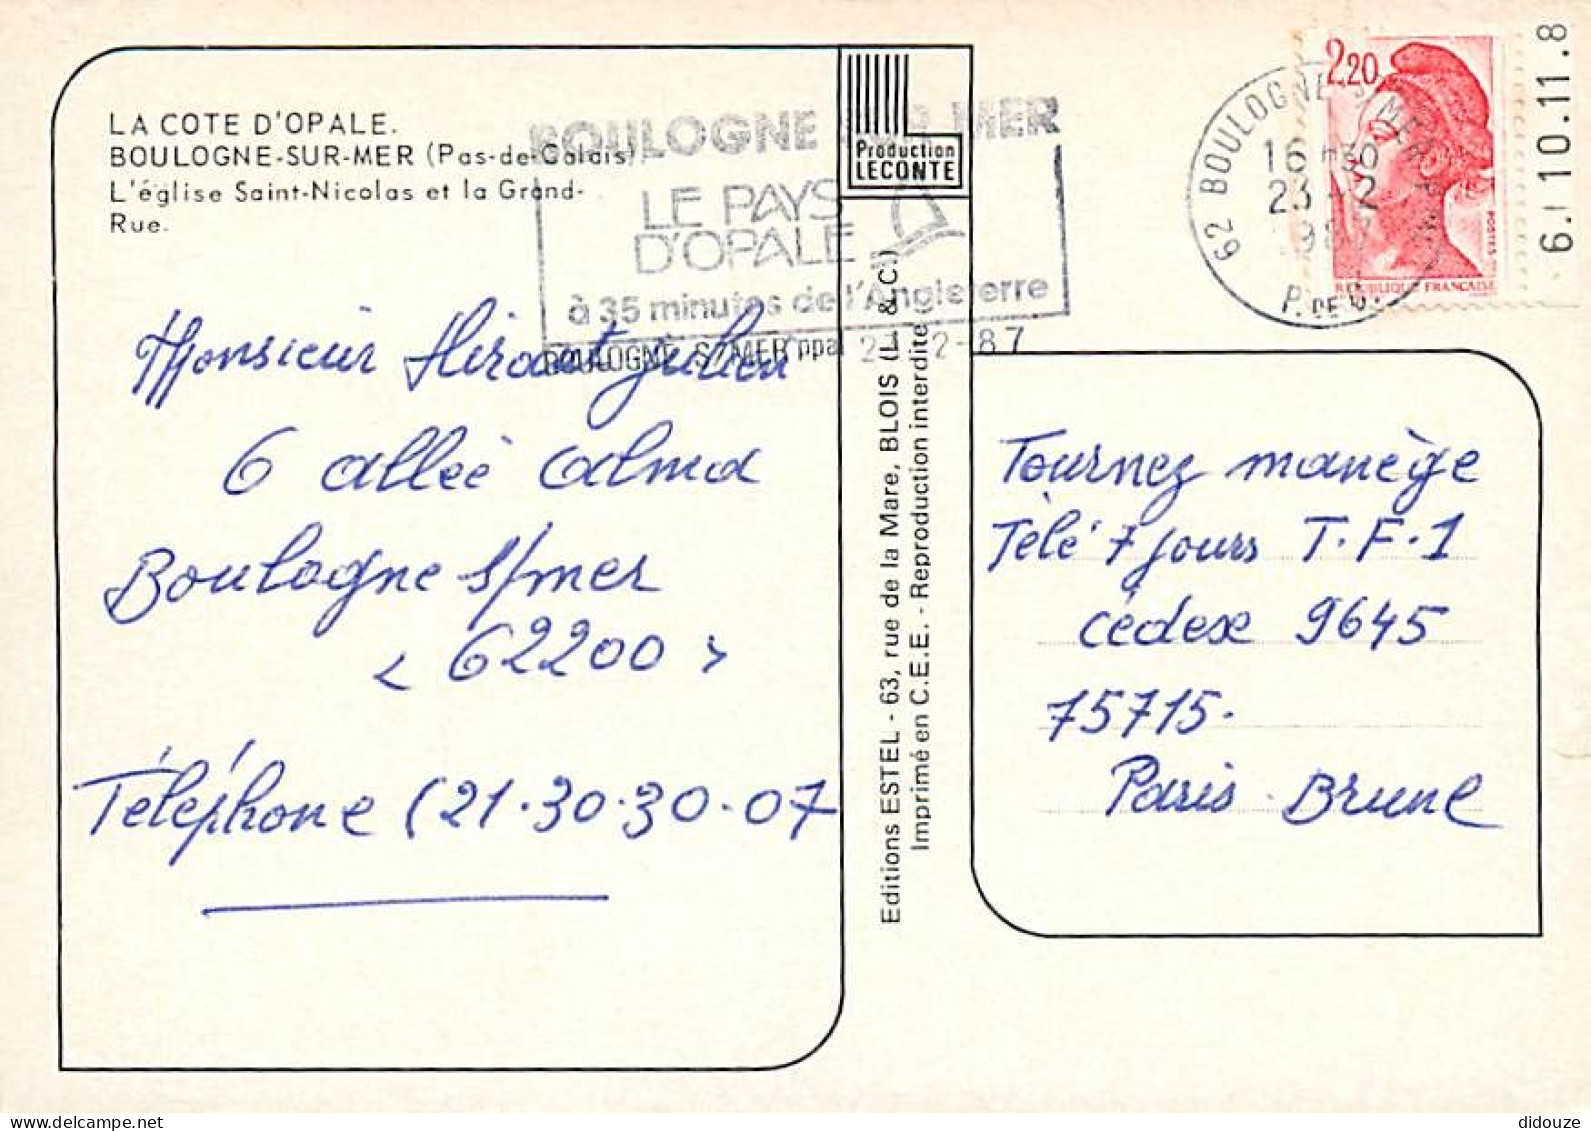 LA COTE D'OPALE.
BOULOGNE-SUR-MER (Pas-de-Calais).
L'église Saint-Nicolas et la Grand-
Rue.
Production
LECONTE
BOULOGNE MER
LE PAYS
D'OPALE
à 35 minutes de l'Angleterre
BOULOGNE S/MER ppal 2-87
62 BOULOGNE S/ MER
P. DE C.
16 H30
23-2
1987
2,20
POSTES
REPUBLIQUE FRANÇAISE
6. 10.11.8
Monsieur Julien
6 allée Calma
Boulogne s/mer
< 62200 >
Téléphone (21.30.30.07
Editions ESTEL - 63, rue de la Mare, BLOIS (L. & C.)
Imprimé en C.E.E. - Reproduction interdite
Tournez manège
Télé 7 jours T.F.1
Cédex 9645
75715.
Paris Brune
didouze